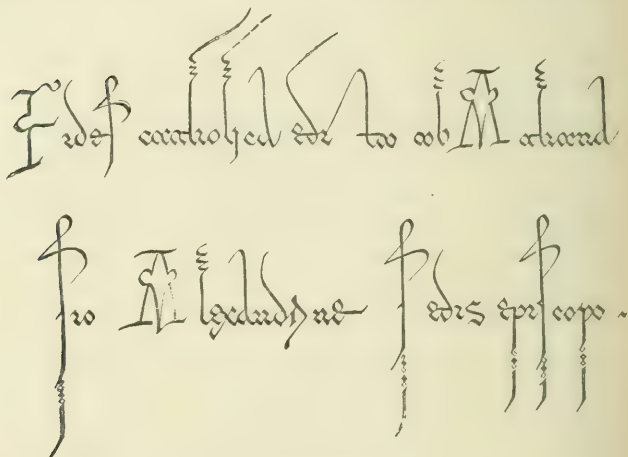 Fideſ catholica edita ab Athana
ſio Alexandrine ſedis epiſcopo .